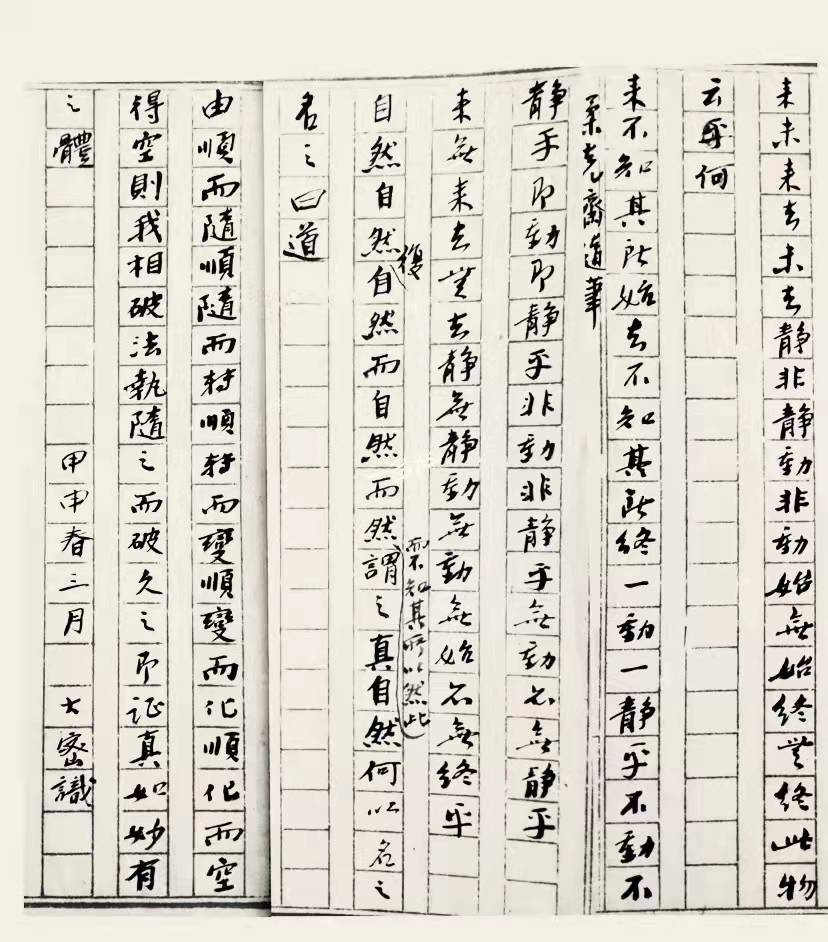 来未来去未去静非静動非動始無始終無終此物
云乎何
来不知其所始去不知其所終一動一静乎不動不
柔克齋道筆
静乎即動即静乎非動非静乎無動亦無静乎
来無来去無去静無静動無動無始亦無終乎
復
自然自然自然而自然而然謂之真自然何以名之
而不知其所以然此
名之曰道
由順而隨順隨而轉順轉而變順變而化順化而空
得空則我相破法執隨之而破久之即证真如妙有
之體 甲申春三月 大密識